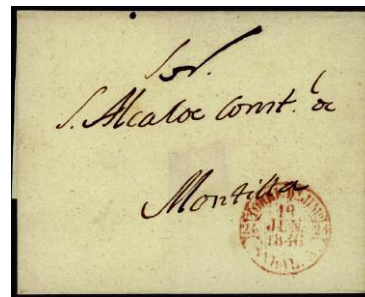 Sor.
S. Alcalde Const.l de
Montilla
19
JUN.
1846
24 24